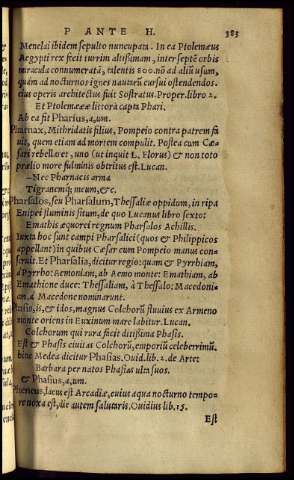 P ANTE H. 383
Menelai ibidem sepulto nuncupata. In ea Ptolemæus
Aegypti rex fecit turrim altissimam, inter septē orbis
miracula connumeratā, talentis 800. nō ad aliū usum,
quàm ad nocturnos ignes nautarū cursui ostendendos.
eius operis architectus fuit Sostratus. Proper. libro 2.
Et Ptolemææ littora capta Phari.
Ab ea fit Pharius, a, um.
Pharnax, Mithridatis filius, Pompeio contra patrem fa
uit, quem etiam ad mortem compulit. Postea cum Cæ
sari rebellaret, uno (ut inquit L. Florus) & non toto
prælio more fulminis obtritus est. Lucan.
—Nec Pharnacis arma
Tigranemq; meum, &c.
Pharsalos, seu Pharsalum, Thessaliæ oppidum, in ripa
Enipei fluminis situm, de quo Lucanus libro sexto:
Emathis æquorei regnum Pharsalos Achillis.
Iuxta hoc sunt campi Pharsalici (quos & Philippicos
appellant) in quibus Cæsar cum Pompeio manus con
seruit. Et Pharsalia, dicitur regio: quam & Pyrrhiam,
à Pyrrho: Aemoniam, ab Aemo monte: Emathiam, ab
Emathione duce: Thessaliam, à Thessalo: Macedoni-
am, à Macedone nominarunt.
Phasis, is, & idos, magnus Colchorū fluuius ex Armeno
monte oriens in Euxinum mare labitur. Lucan.
Colchorum qui rura secat ditissima Phasis.
Est & Phasis ciuitas Colchorū, emporiū celeberrimū.
hinc Medea dicitur Phasias. Ouid. lib. 2. de Arte:
Barbara per natos Phasias ulta suos.
& Phasius, a, um.
Pheneus, lacus est Arcadiæ, cuius aqua nocturno tempo-
re noxa est, die autem salutaris. Ouidius lib. 15.
Est